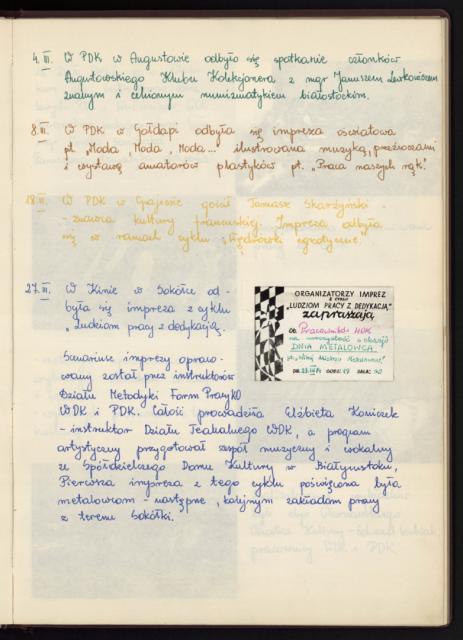 4.III. W PDK w Augustowie odbyło się spotkanie członków
Augustowskiego Klubu Kolekcjonera z mgr Januszem
znanym i cenionym numizmatykiem białostockim.
8.III. W PDK w Gołdapi odbyła się impreza oświatowa
pt. "Moda, Moda, Moda..." ilustrowana muzyką, przeźroczami
i wystawą amatorów plastyków pt. "Praca naszych rąk".
18.III. W PDK w Grajewie gościł Tomasz Skarżyński -
- znawca kultury francuskiej. Impreza odbyła
się w ramach cyklu "Wędrówki egzotyczne".
27.III. W Kinie w Sokółce od-
była się impreza z cyklu
"Ludziom pracy z dedykacją.
Scenariusz imprezy opraco-
wany został przez instruktorów
Działu Metodyki Form Pracy KO
WDK i PDK. Całość prowadziła Elżbieta Koniczek
- instruktor Działu Teatralnego WDK, a program
artystyczny przygotował zespół muzyczny i wokalny
ze Spółdzielczego Domu Kultury w Białymstoku,
Pierwsza impreza z tego cyklu poświęcona była
metalowcom - następne, kolejnym zakładom pracy
z terenu Sokółki.
ORGANIZATORZY IMPREZ
Z CYKLU
"LUDZIOM PRACY Z DEDYKACJĄ"
zapraszają
OB. Pracowników WDK
na uroczystość z okazji
DNIA METALOWCA
pt.
DN. GODZ. 19 SALA: